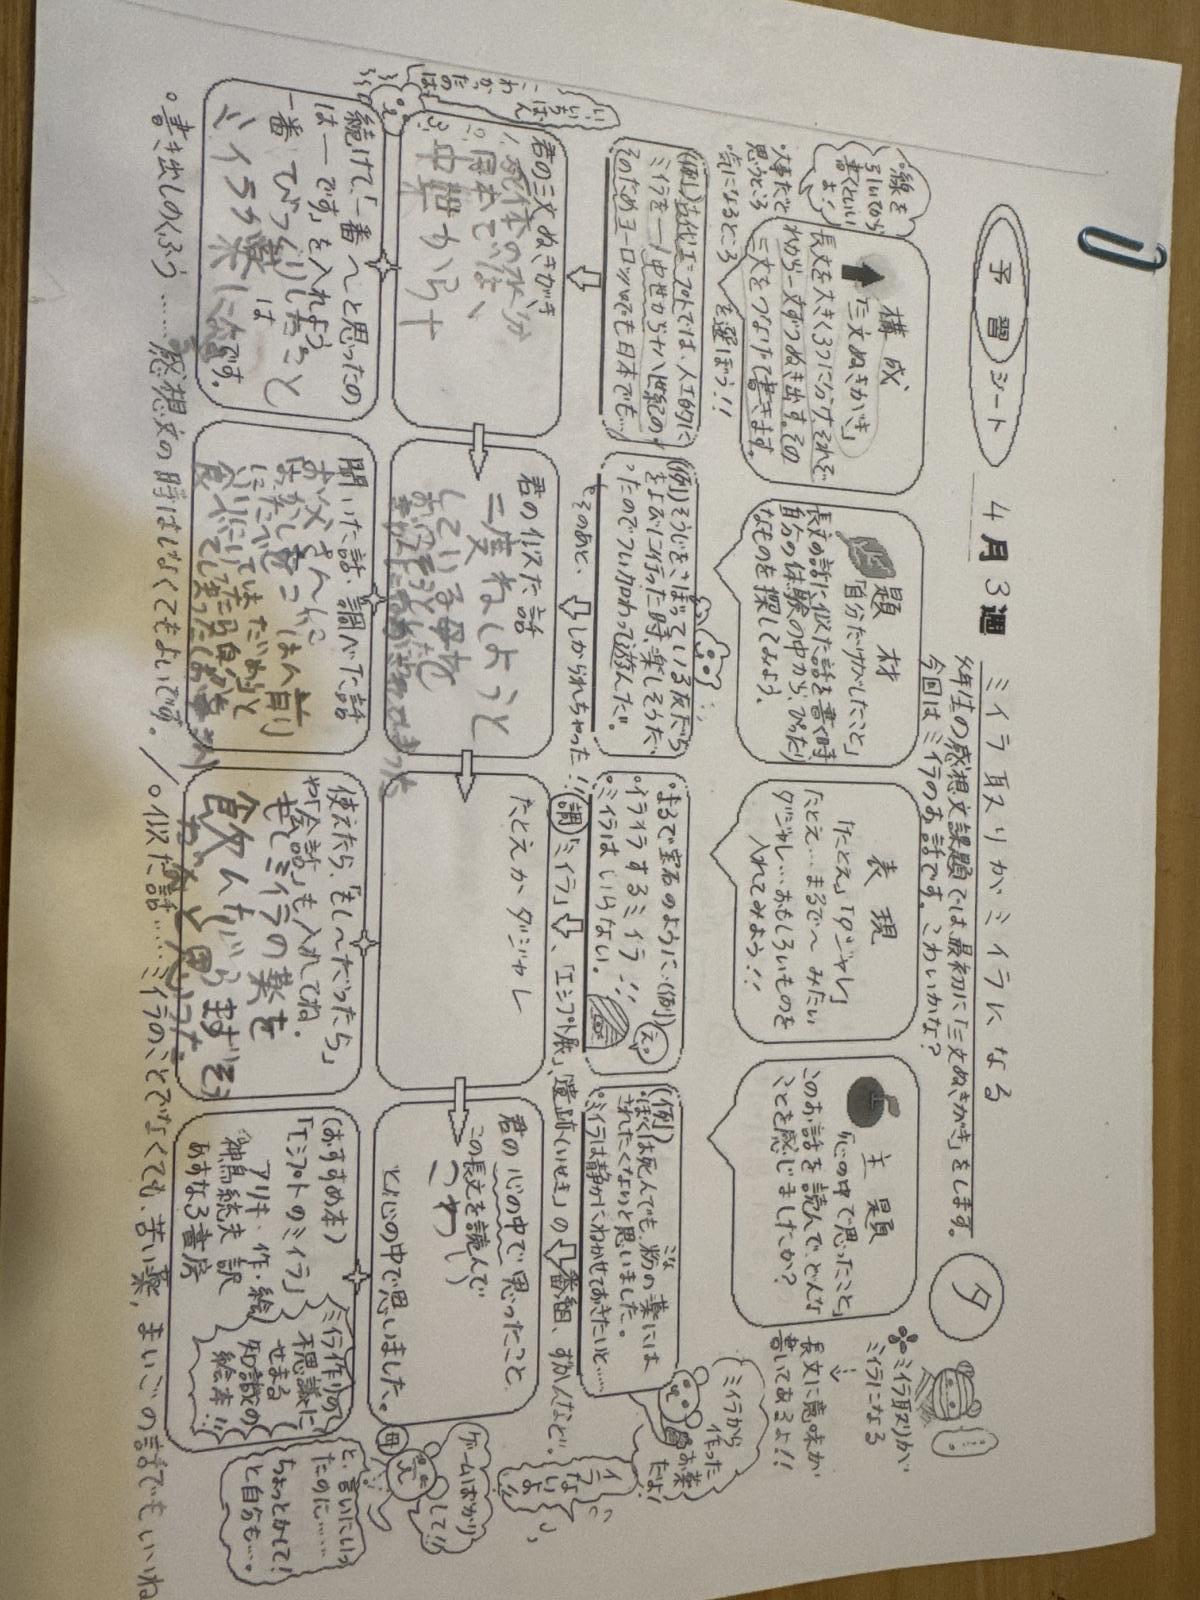 予習シート
4月3週 ミイラ取りがミイラになる
タ
年生の感想文課題では、最初に「三文ぬきがき」をします。
今回はミイラのお話です。こわいかな?
ミイラ取りが
ミイラになる
↓
長文に意味が
書いてあるよ!!
線を
引いてから
書くといい
よ!
構成
「三文ぬきがき」
長文を大きく3つに分け、それぞ
れから一文ずつぬき出す。その
三文をつなげて書きます。
・大事だと
思うところ
・気になるところ
を選ぼう!!
題材
「自分だけがしたこと」
長文の話に似た話を書く時
自分の体験の中から、ぴったり
なものを探してみよう。
表現
「たとえ」「ダジャレ」
たとえ…まるで〜みたい
ダジャレ…おもしろいものを
入れてみよう!!
主題
「心の中で思ったこと」
このお話を読んで、どんな
ことを感じましたか?
(例)古代エジプトでは、人工的に
ミイラを…/中世から十八世紀の…/
そのためヨーロッパでも日本でも…
(例)そうじをさぼっている友だち
をよびに行った時、楽しそうだ
ったのでつい加わって遊んだ。
そのあと、
しかられちゃった!!
まるで宝石のように…(例)
・イライラするミイラ!!
・ミイラはいらない。
え。
(例)
・ぼくは死んでも、粉の薬には
されたくないと思いました。
・ミイラは静かにねかせておきたいと……
こな
ミイラから
作った
お薬
だよ!
調「ミイラ」、「エジプト展」、「遺跡(いせき)」の番組、ずかんなど。
いちばん
こわ
かっ
たの
は
君の三文ぬきがき
1.死体の水分
2.日本では、
3.中世から十
君の似た話
二度ねしようと
している母を
たとえかダジャレ
君の心の中で思ったこと
この長文を読んで
こわい
と心の中で思いました。
ゲームばかり
して!!
母
と、言いにいっ
たのに……
ちょっとかして!
と自分も…。
続けて、「一番〜と思ったの
は――です」を入れよう。
一番びっくりしたこと
は
ミイラが薬に
です。
聞いた話・調べた話
お父さんに
使えたら、「もし〜だったら」
や「会話」も入れてね。
もしミイラの薬を
飲んだらまずそう
だなと思った。
(おすすめ本)
「エジプトのミイラ」
アリキ・作・絵
神鳥統夫 訳
あすなろ書房
ミイラ作りの
不思議に
せまる
知識の
絵本!!
・書き出しのくふう……感想文の時はしなくてもよいです。/・似た話……ミイラのことでなくても、苦い薬、まいごの話でもいいね